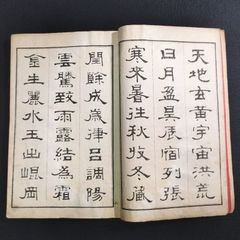 天地玄黃宇宙洪荒
日月盈昃辰宿列張
寒來暑往秋收冬藏
閏餘成歲律呂調陽
雲騰致雨露結為霜
金生麗水玉出崐岡